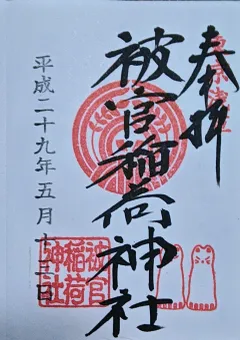 奉拝
被官稲荷神社
平成二十九年五月十三日
被官
稲荷
神社